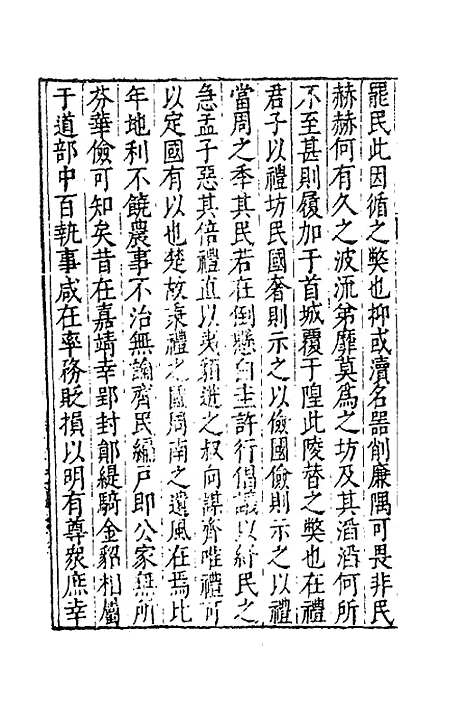 罷民此因循之獘也抑或瀆名器削廉隅可畏非民
赫赫何有久之波流弟靡莫爲之坊及其滔滔何所
不至甚則履加于首城覆于隍此陵替之獘也在禮
君子以禮坊民國奢則示之以儉國儉則示之以禮
當周之季其民若在倒懸自圭許行倡議以紓民之
急孟子惡其倍禮直以夷貊進之叔向謀齊唯禮可
以定國有以也楚故秉禮之國周南之遺風在焉比
年地利不饒農事不治無論齊民編戶即公家無所
芬華儉可知矣昔在嘉靖幸郢封郎緹騎金貂相屬
于道部中百執事咸在率務貶損以明有尊炭庶幸